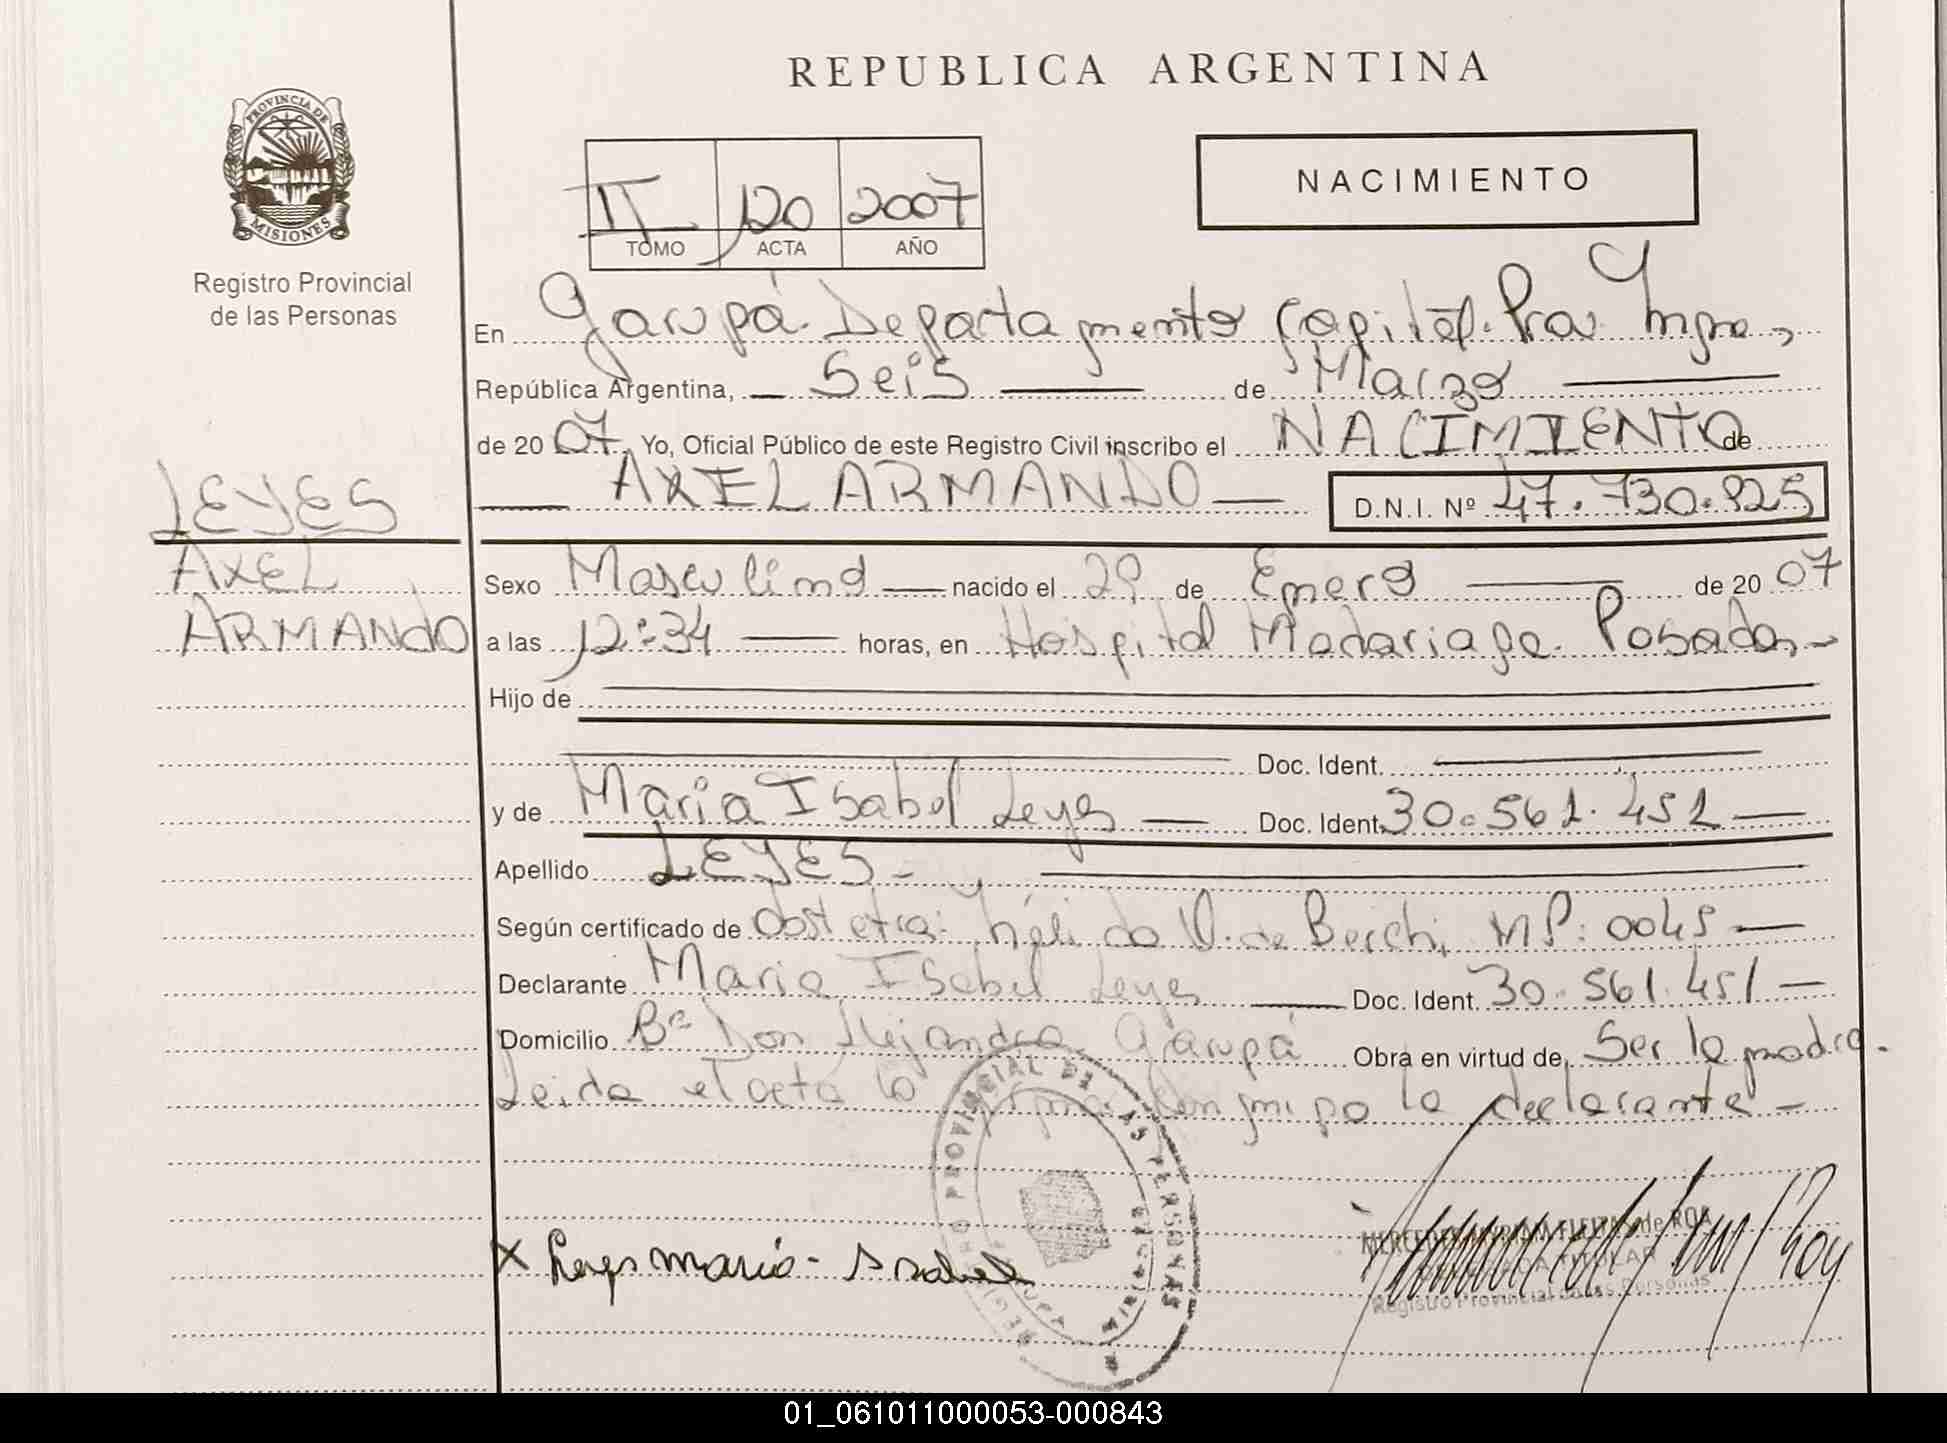 REPUBLICA ARGENTINA
PROVINCIA DE
MISIONES
Registro Provincial
de las Personas
NACIMIENTO
II 120 2007
TOMO ACTA AÑO
En Garupá Departamento Capital. Pcia. Mnes,
República Argentina, Seis de Marzo
de 20 07 Yo, Oficial Público de este Registro Civil inscribo el NACIMIENTO de
AXEL ARMANDO D.N.I. Nº 47.730.925
LEYES
AXEL
ARMANDO
Sexo Masculino nacido el 29 de Enero de 20 07
a las 12:34 horas, en Hospital Madariaga. Posadas
Hijo de
Doc. Ident.
y de Maria Isabel Leyes Doc. Ident. 30.561.451
Apellido LEYES
Según certificado de Obstetra: Nélida V. de Berchi MP: 0045
Declarante Maria Isabel Leyes Doc. Ident. 30.561.451
Domicilio Bº Don Alejandro Garupá Obra en virtud de Ser la madre.
Leida el acta la firma conmigo la declarante
REGISTRO PROVINCIAL DE LAS PERSONAS
GARUPA
X Leyes Maria Isabel
MERCEDES MYRIAM FLEITAS de ROA
TITULAR
Registro Provincial de las Personas
01_061011000053-000843